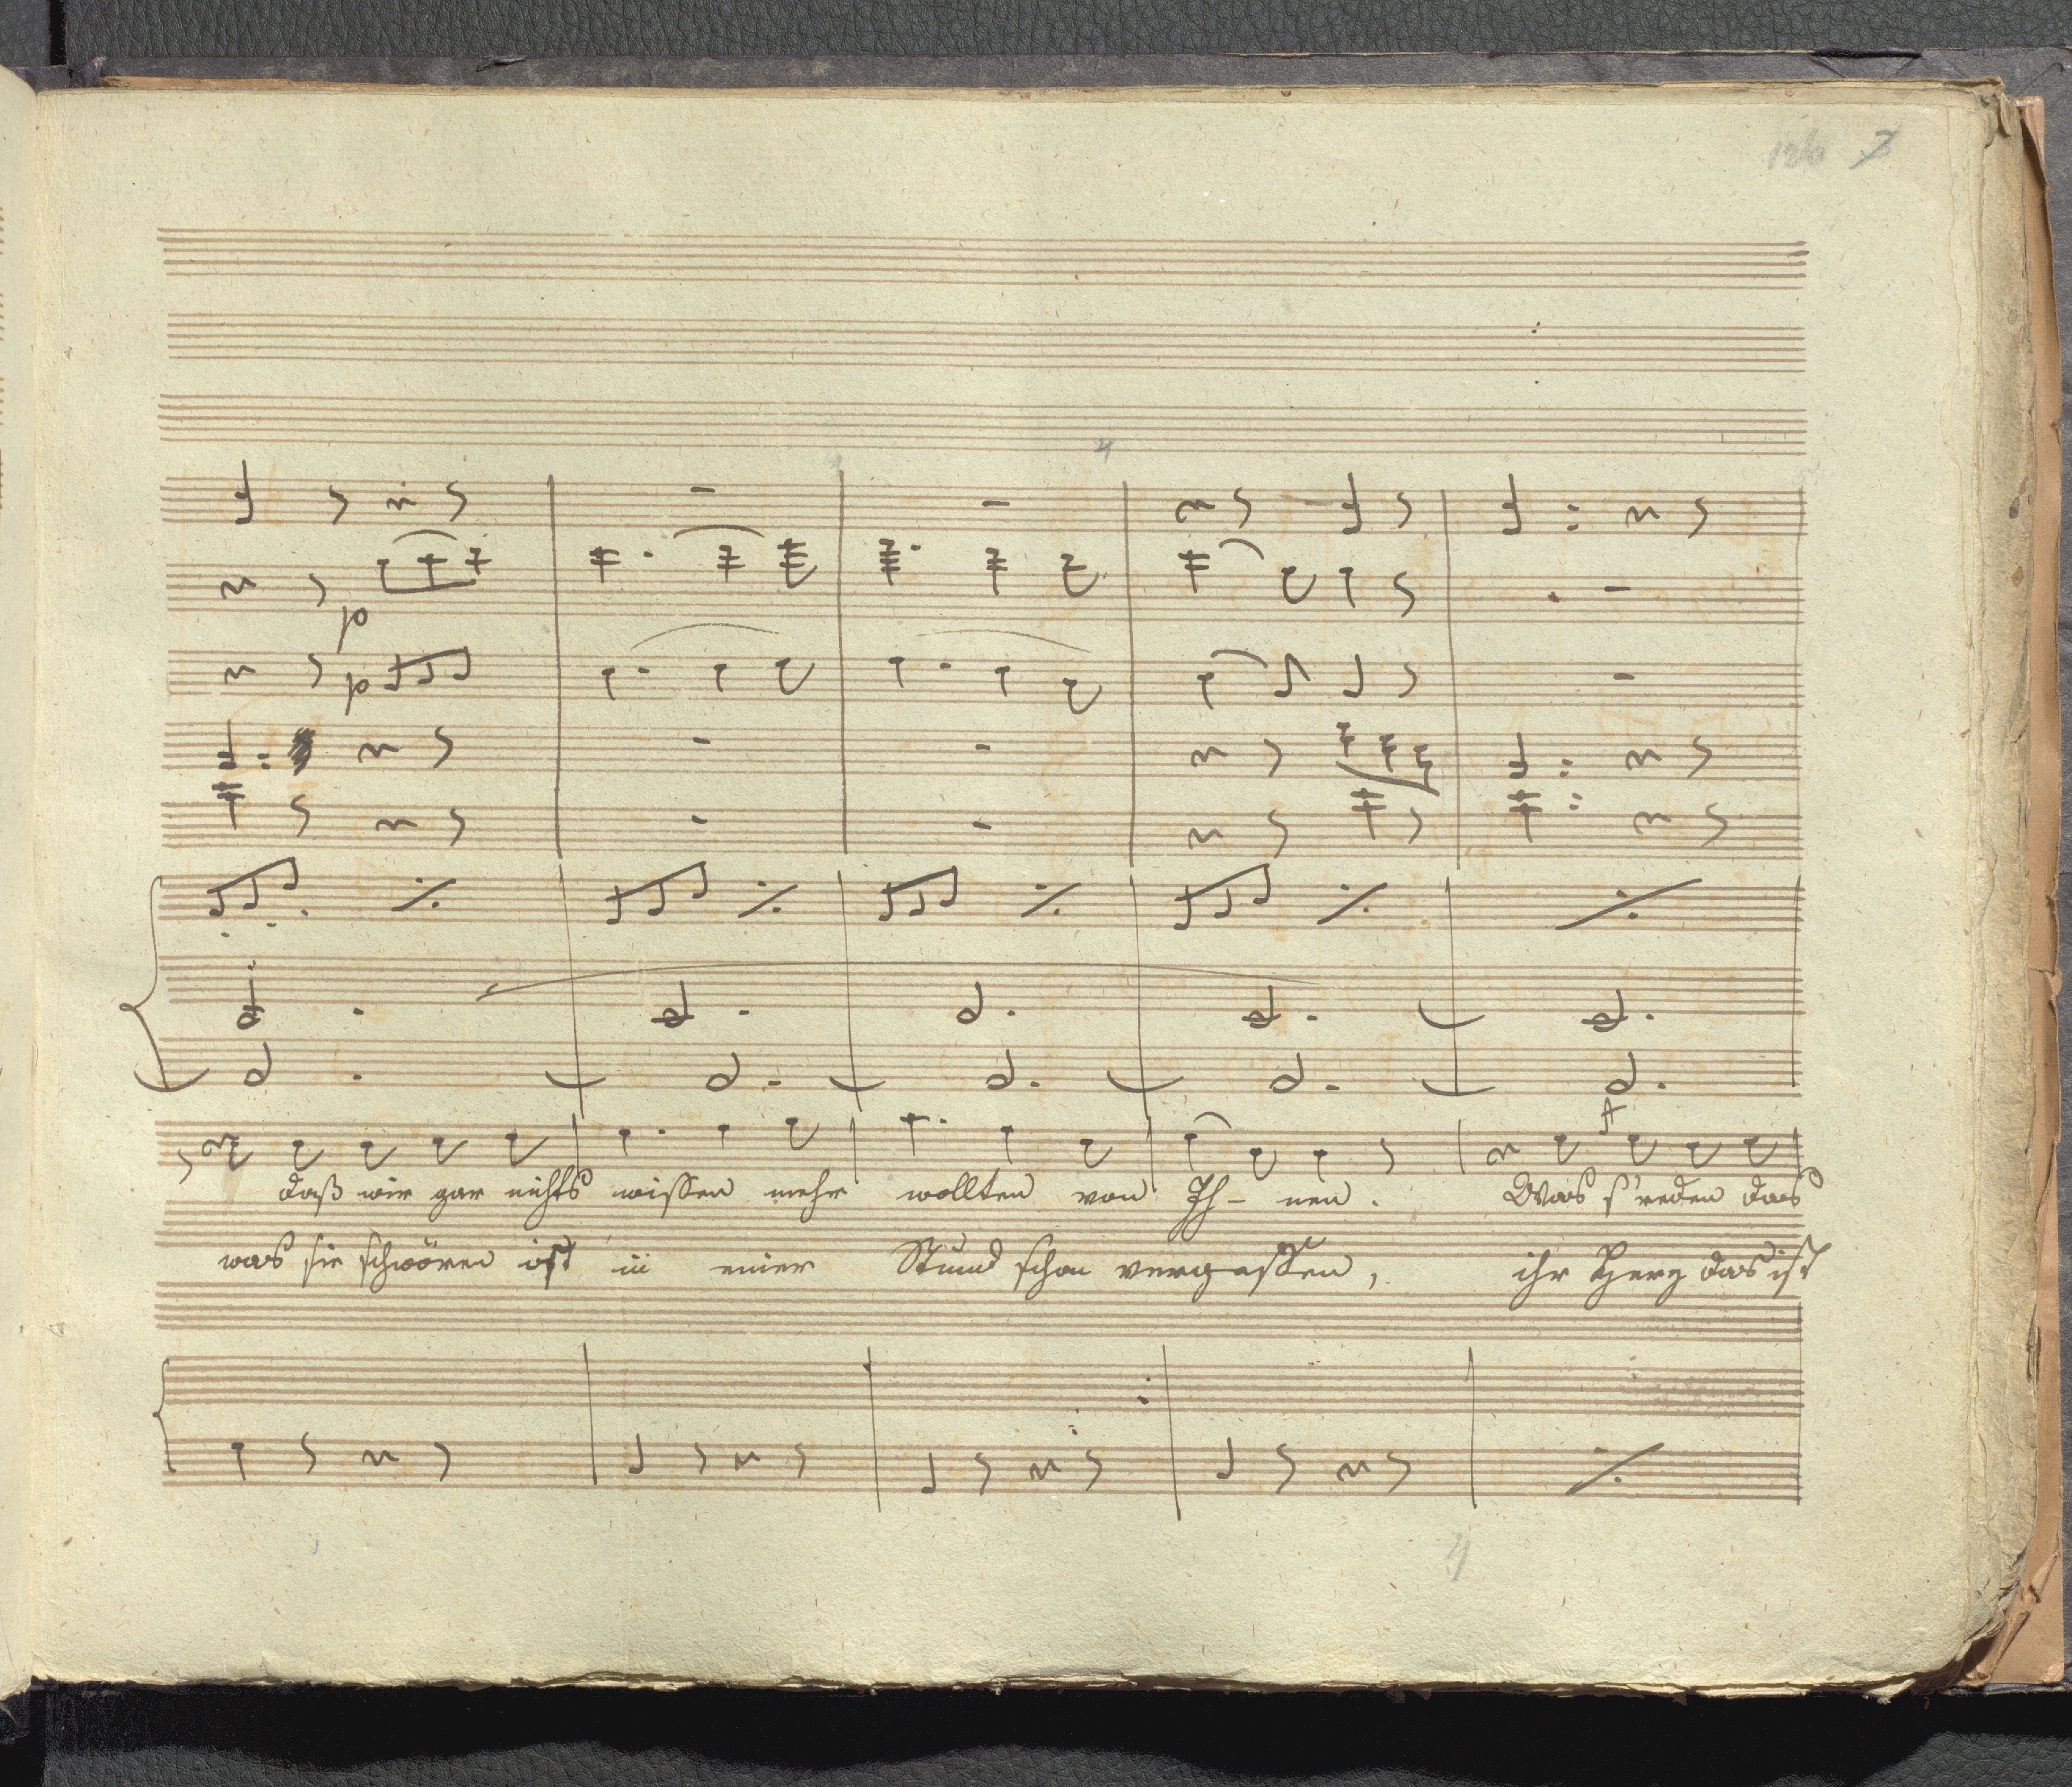 7
p
p
daß wir gar nichts wissen mehr wollten von Ih- nen. Was s'reden das
was sie schwören ist in einer Stund schon vergessen, ihr Herz das ist